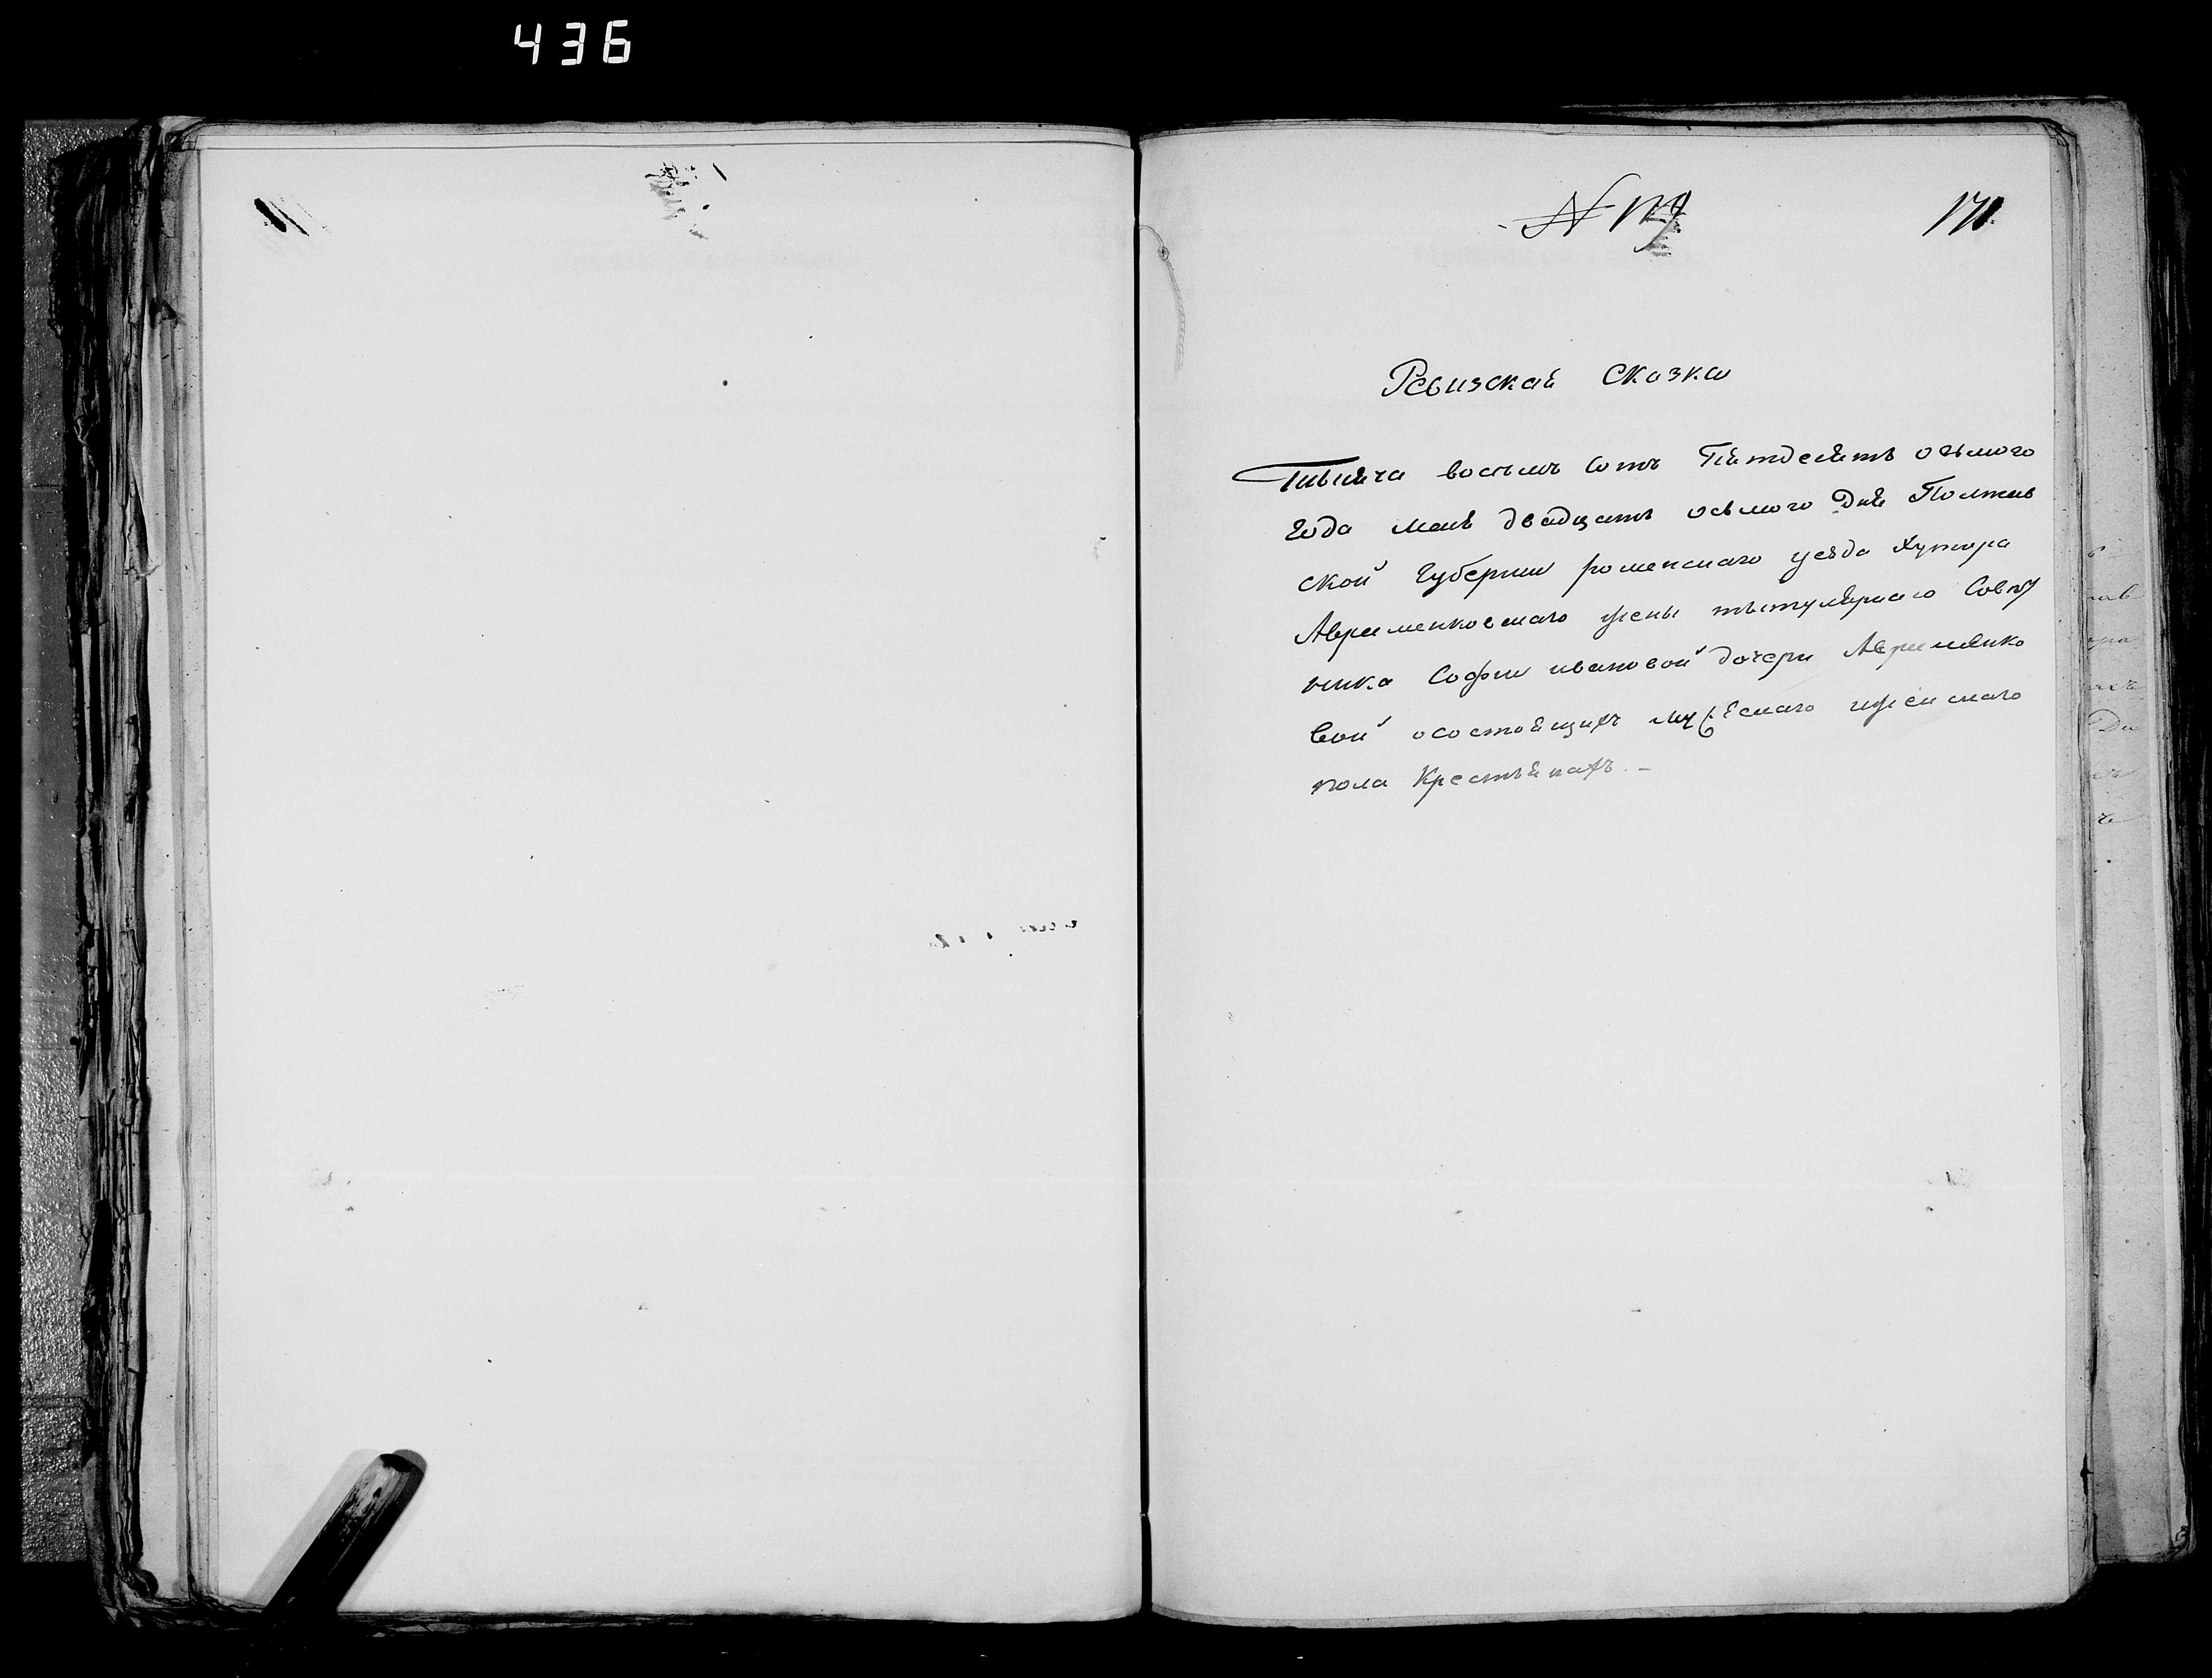 436
171.
Ревизская Сказка
Тысяча восемь сотъ Пятдесятъ осьмого
года мая двадцать осьмого дня Полтав
ской Губернии роменскаго уезда Хутора
Авраменковскаго жены титулярнаго Совет
ника Софии ивановой дочери Авраменко
вой осостоящихъ мужескаго иженскаго
пола Крестьянахъ. –